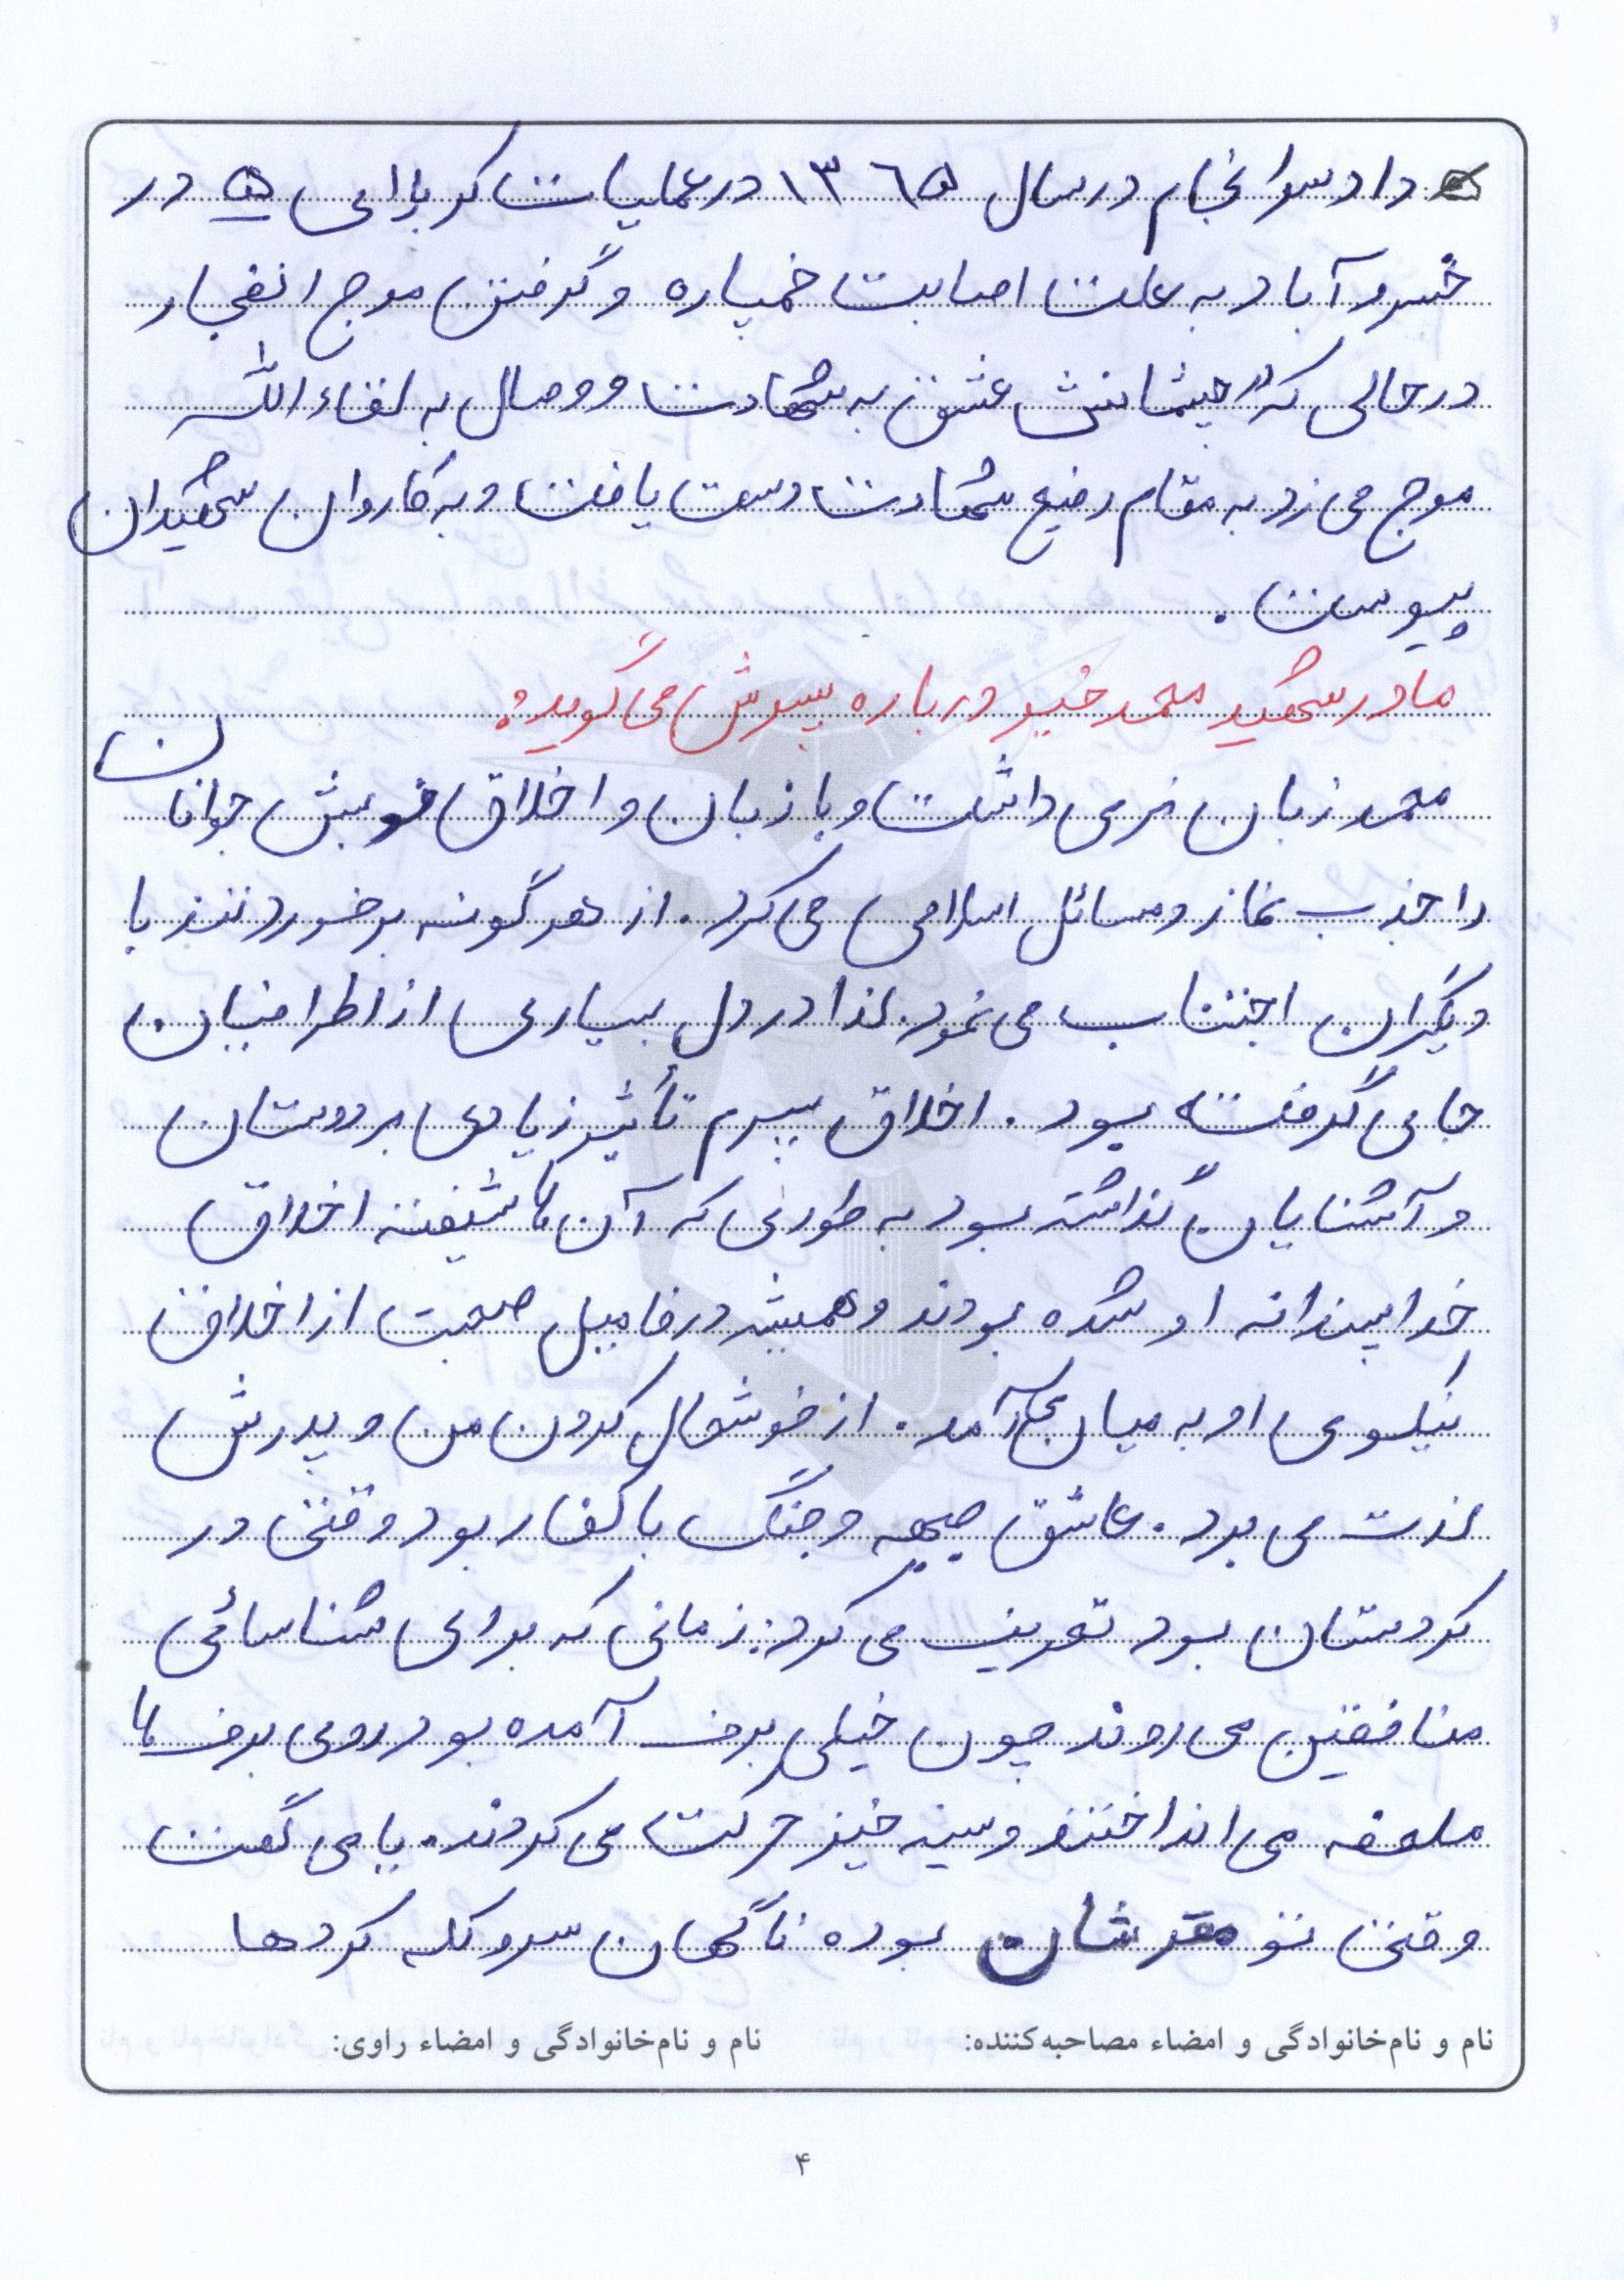 داد سرانجام در سال ۱۳۶۵ در عملیات کربلای ۵ در
خسروآباد به علت اصابت خمپاره و گرفتن موج انفجار
در حالی که در چشمانش عشق به شهادت و وصال به لقاءالله
موج می زد به مقام رفیع شهادت دست یافت و به کاروان شهیدان
پیوست.
مادر شهید محمد خیبر درباره پسرش می گوید:
محمد زبان نرمی داشت و با زبان و اخلاق خوبش جوانان
را جذب نماز و مسائل اسلامی می کرد. از هر گونه برخورد تند با
دیگران اجتناب می نمود. لذا در دل بسیاری از اطرافیان
جای گرفته بود. اخلاق پسرم تأثیر زیادی بر دوستان
و آشنایان گذاشته بود به طوری که آن ها شیفته اخلاق
خداپسندانه او شده بودند و همیشه در فامیل صحبت از اخلاق
نیکوی او به میان می آمد. از خوشحال کردن من و پدرش
لذت می برد. عاشق جبهه و جنگ با کفار بود وقتی در
کردستان بود تعریف می کرد: زمانی که برای شناسائی
منافقین می روند چون خیلی برف آمده بود روی برف ها
ملحفه می انداختند و سینه خیز حرکت می کردند. یا می گفت
وقتی تو مقرشان بوده ناگهان سروکله کردها
نام و نام‌خانوادگی و امضاء مصاحبه‌کننده: نام و نام‌خانوادگی و امضاء راوی:
۴